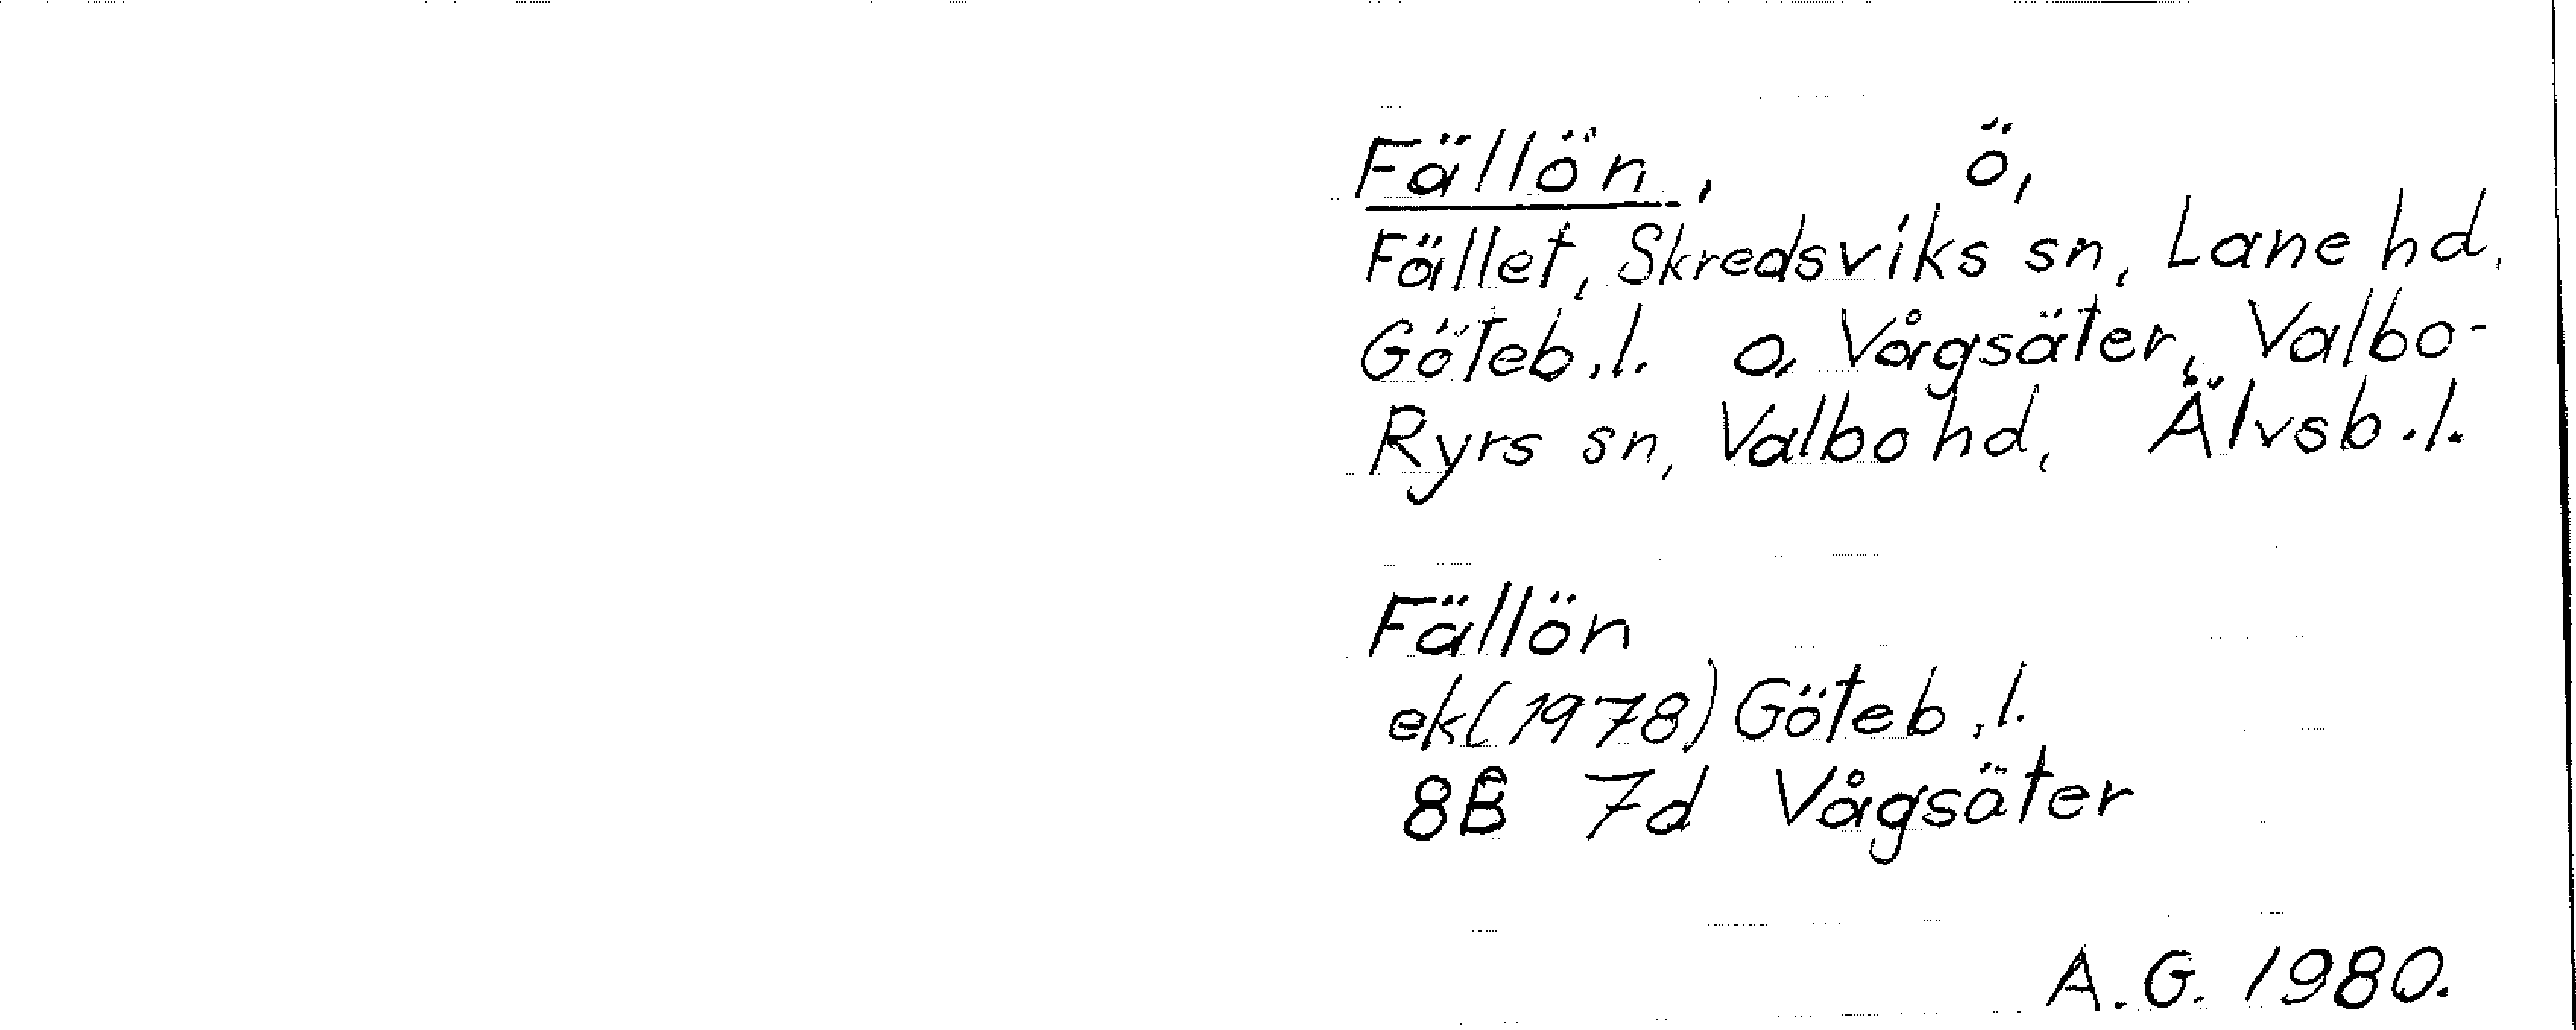 Fällön, ö,
Fället, Skredsviks sn, Lane hd,
Göteb.l. o, Vågsäter, Valbo-
Ryrs sn, Valbo hd, Älvsb.l.
Fällön
ek(1978) Göteb.l.
8B 7d Vågsäter
A.G. 1980.